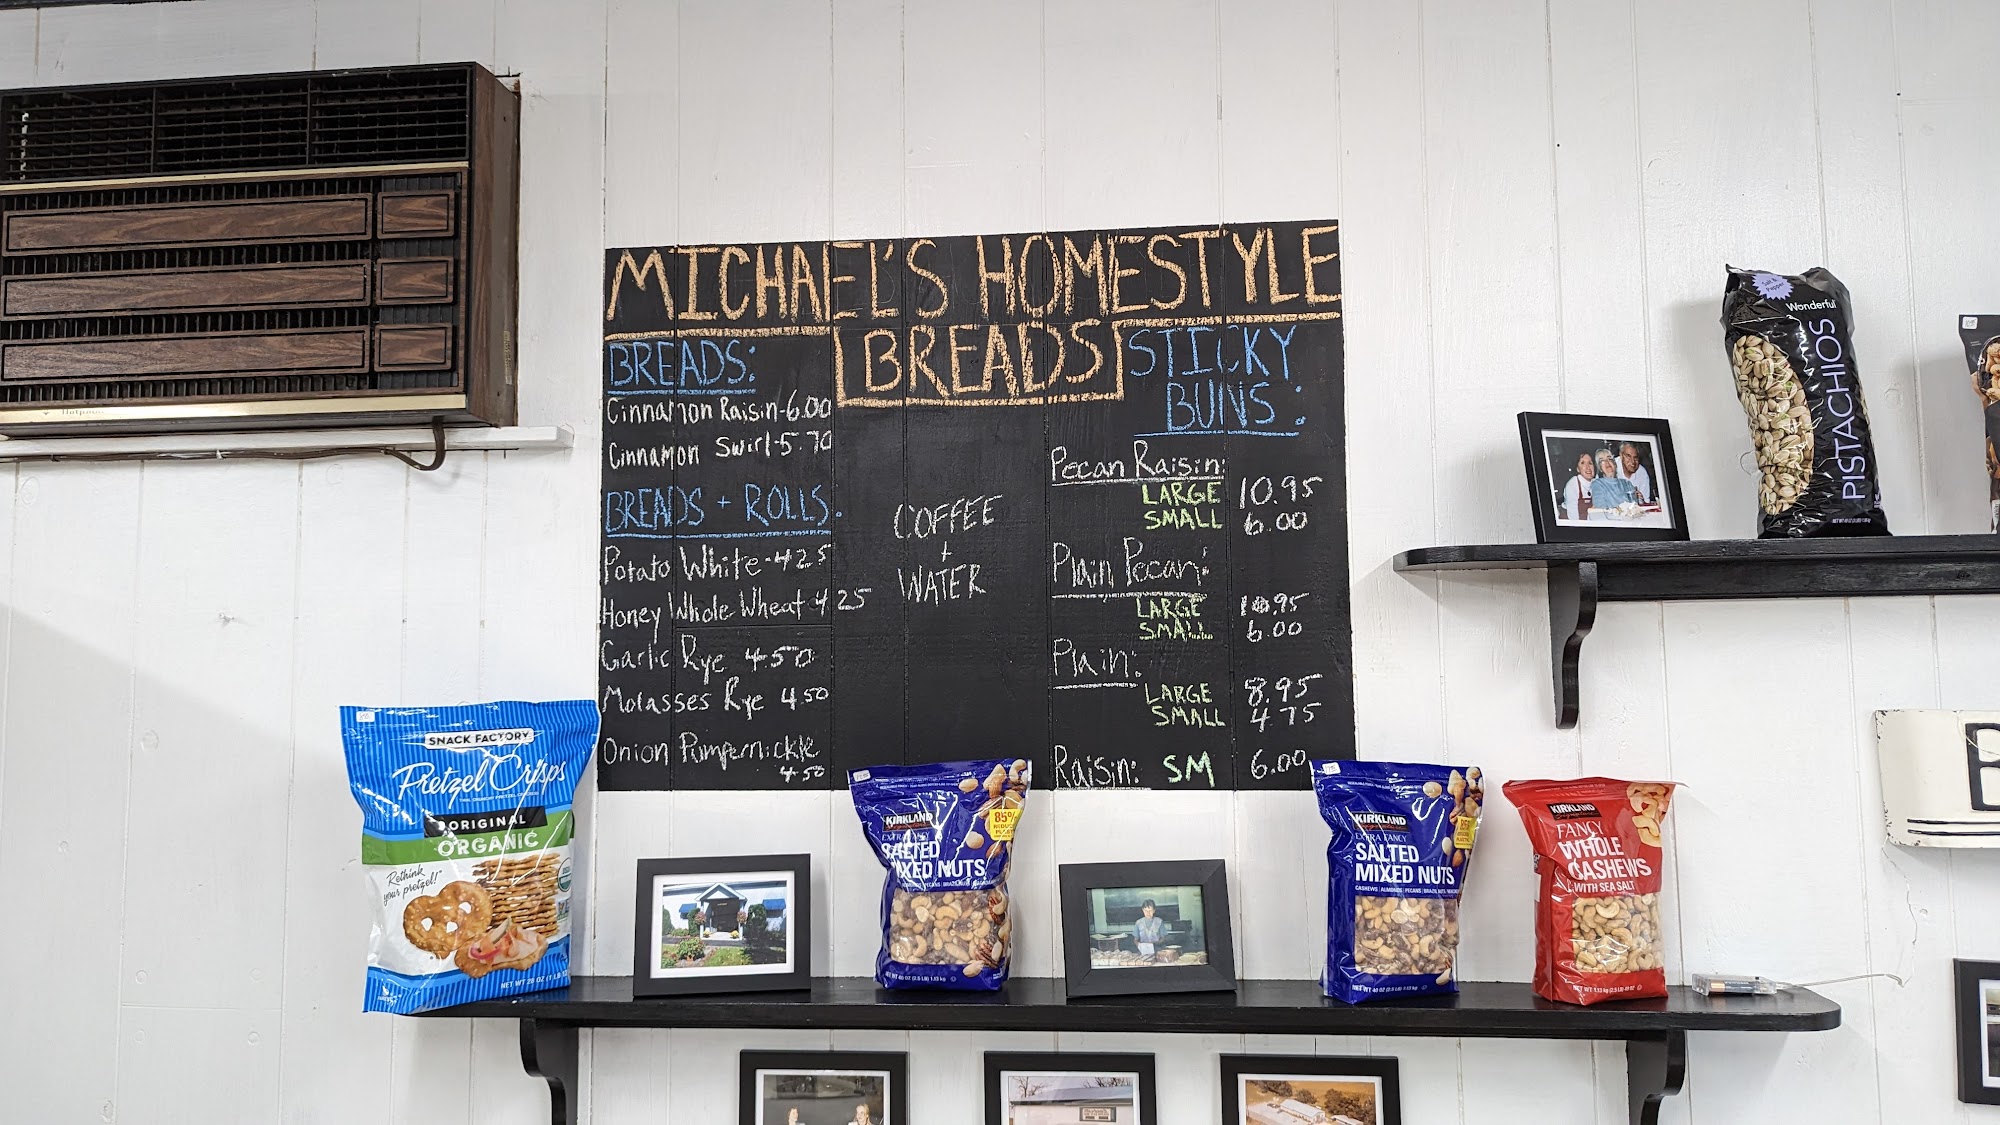 MICHAEL'S HOMESTYLE
BREADS
BREADS:
Cinnamon Raisin-6.00
Cinnamon Swirl-5.70
BREADS + ROLLS:
Potato White-4.25
Honey Whole Wheat 4.25
Garlic Rye 4.50
Molasses Rye 4.50
Onion Pumpernickle
4.50
COFFEE
+
WATER
STICKY
BUNS:
Pecan Raisin:
LARGE 10.95
SMALL 6.00
Plain Pecan:
LARGE 10.95
SMALL 6.00
Plain:
LARGE 8.95
SMALL 4.75
Raisin: SM 6.00
Wonderful
PISTACHIOS
SNACK FACTORY
Pretzel Crisps
ORIGINAL
ORGANIC
Rethink
your pretzel!
NET WT 28 OZ
KIRKLAND
EXTRA FANCY
SALTED
MIXED NUTS
85%
NET WT 40 OZ (2.5 LB) 1.13 kg
KIRKLAND
EXTRA FANCY
SALTED
MIXED NUTS
CASHEWS | ALMONDS | PECANS | BRAZIL NUTS
NET WT 40 OZ (2.5 LB) 1.13 kg
KIRKLAND
FANCY
WHOLE
CASHEWS
WITH SEA SALT
Hotpoint